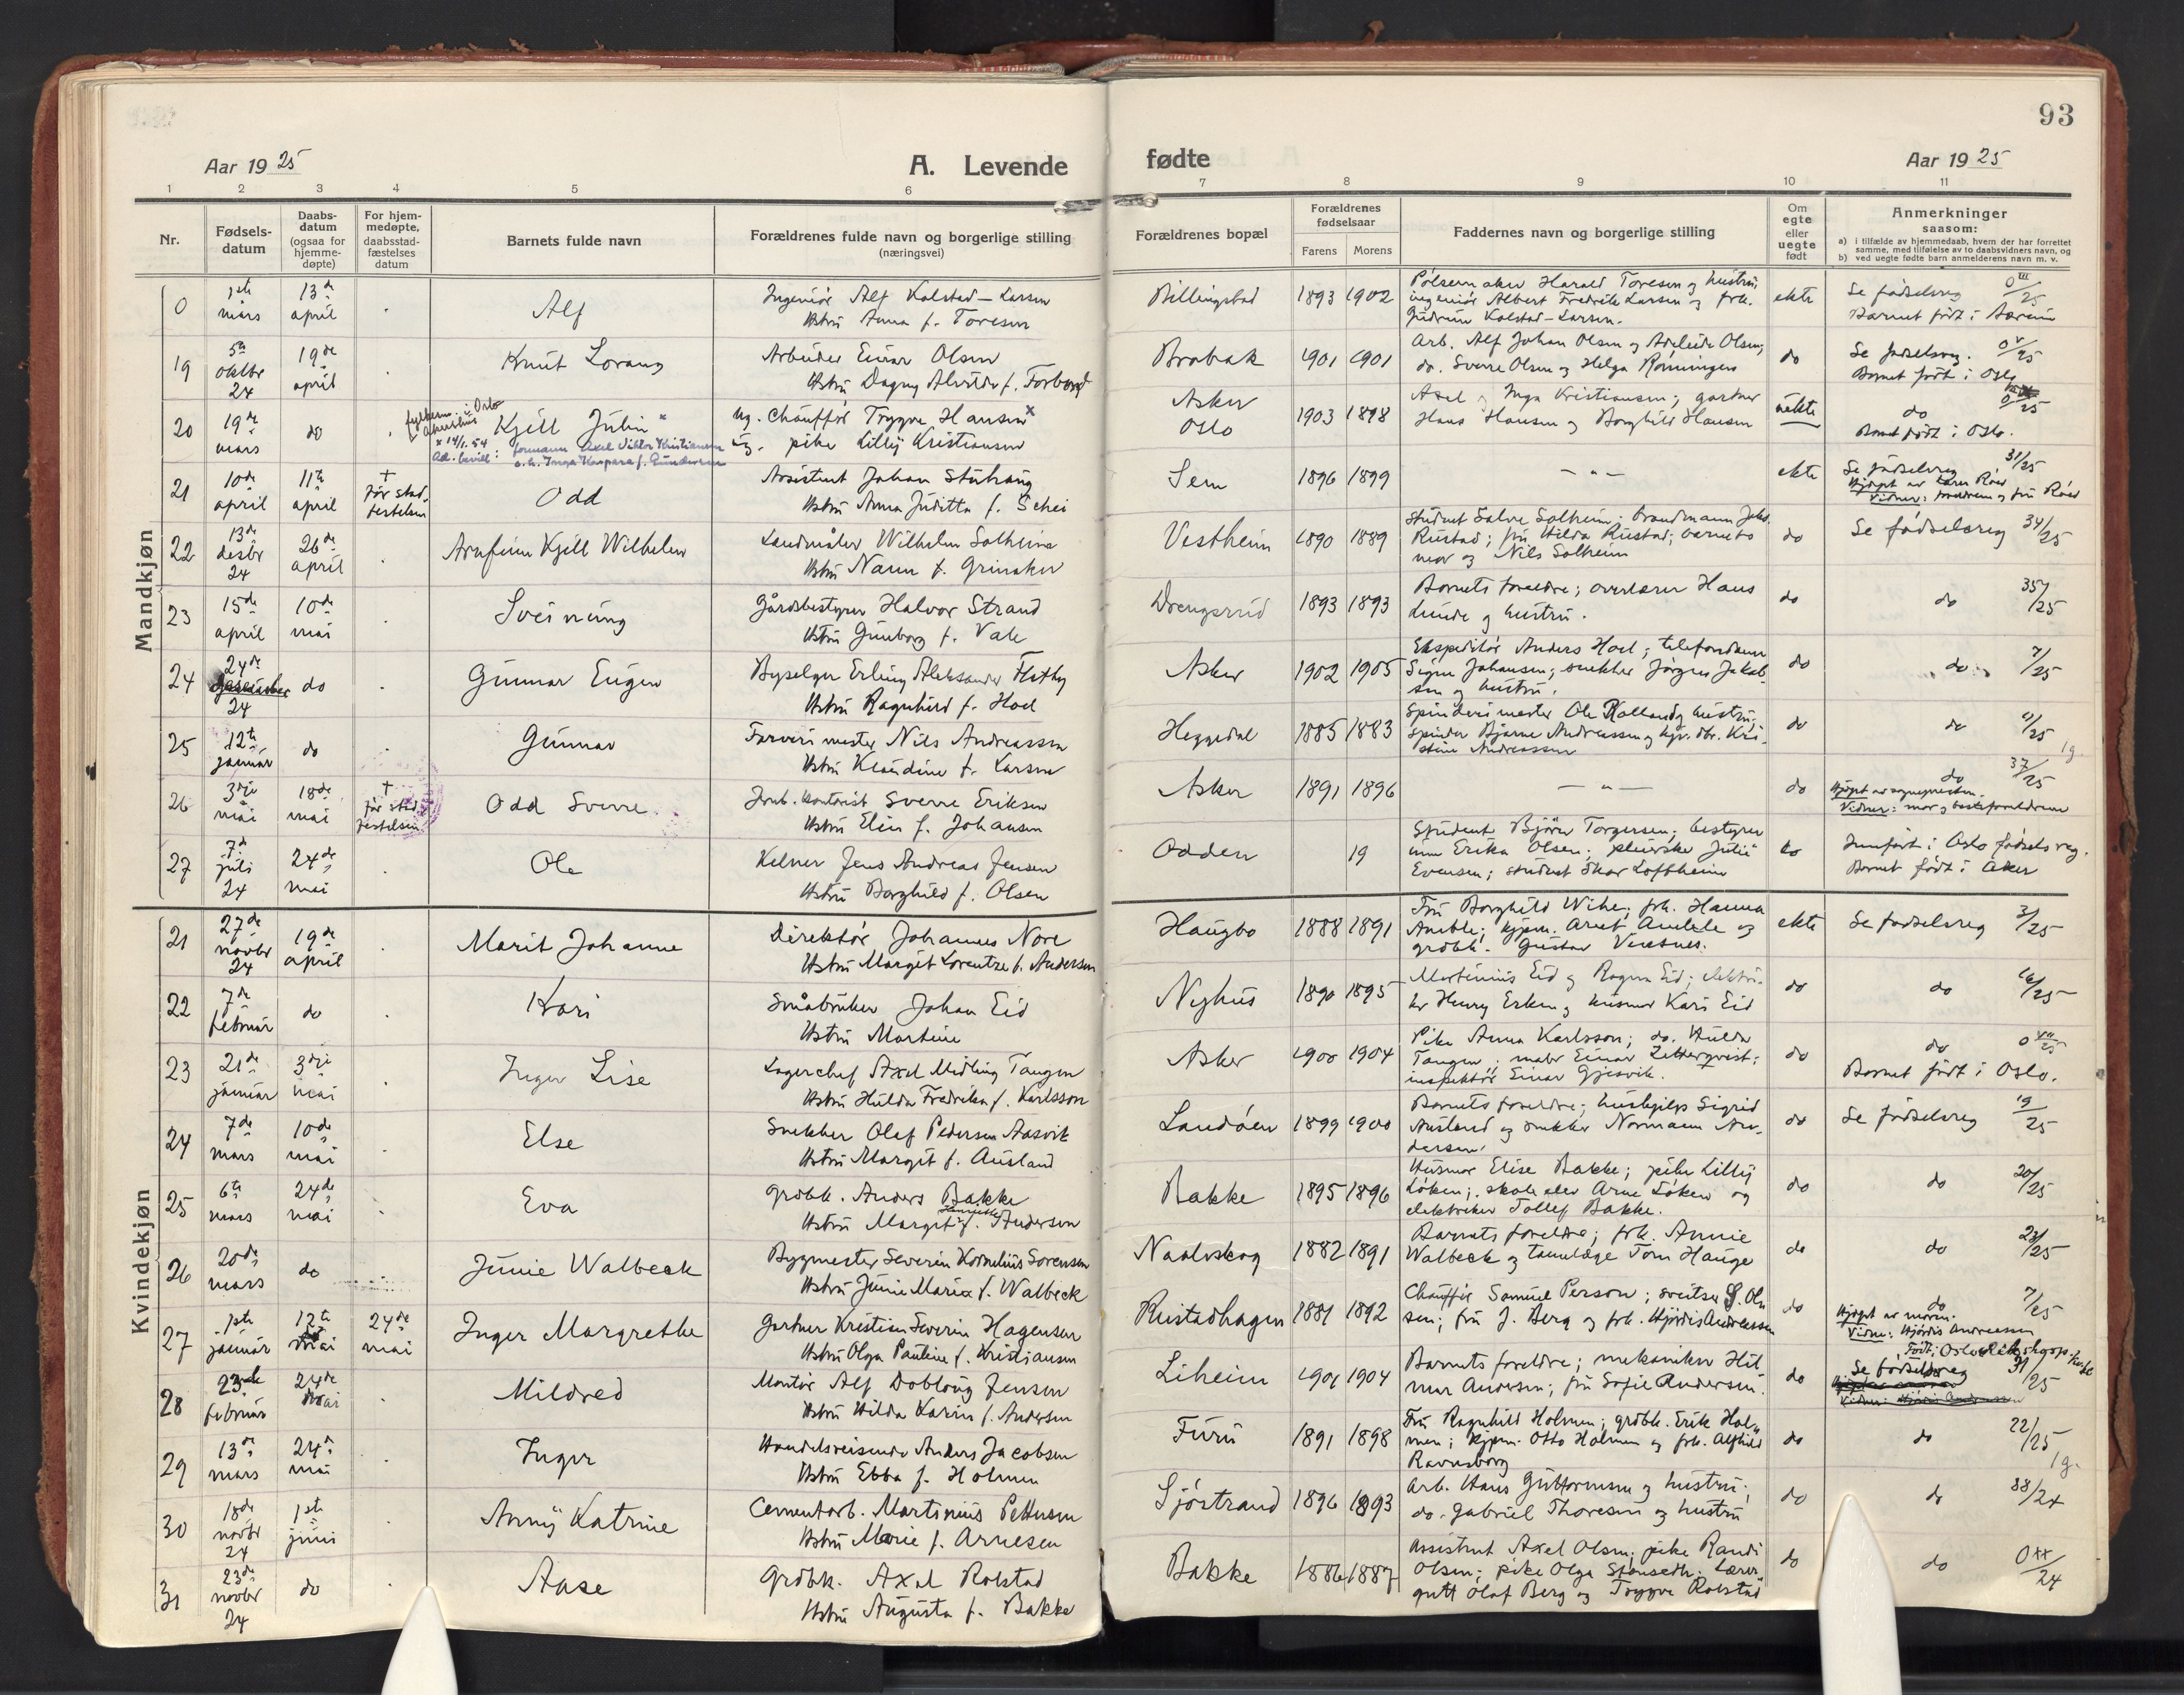 93
Aar 1925
A. Levende
fødte
Aar 1925
1 2 3 4 5 6 7 8 9 10 11
Nr.
Fødsels-
datum
Daabs-
datum
(ogsaa for
hjemme-
døpte)
For hjem-
medøpte,
daabsstad-
fæstelses
datum
Barnets fulde navn
Forældrenes fulde navn og borgerlige stilling
(næringsvei)
Forældrenes bopæl
Forældrenes
fødselsaar
Farens Morens
Faddernes navn og borgerlige stilling
Om
egte
eller
uegte
født
Anmerkninger
saasom:
a) i tilfælde av hjemmedaab, hvem der har forrettet
samme, med tilføielse av to daabsvidners navn, og
b) ved uegte fødte barn anmelderens navn m. v.
Mandkjøn
0 1ste mars 13de april Alf
Ingeniør Alf Kolstad-Larsen
Hstru Anna f. Toresen
Billingstad 1893 1902
Pølsemaker Harald Toresen og hustru
ingeniør Albert Fredrik Larsen og frk.
Gudrun Kolstad-Larsen.
ekte
Se fødselsreg 0III/25
Barnet født i Bærum
19 5te oktbr 24 19de april Knut Lorang
Arbeider Einar Olsen
Hstru Dagny Alvilde f. Forbord
Brobak 1901 1901
Arb. Alf Johan Olsen og Adeleide Olsen;
do. Sverre Olsen og Helga Rønningen
do
Se fødselsreg. 0V/25
Barnet født i Oslo
20 19de mars do Kjell Julin x
x 14/1.54
Ad. bevill: formann Axel Viktor Kristiansen
o.h. Inga Kaspara f. Gundersen
Ug. Chauffør Trygve Hansen x
Ug. pike Lilly Kristiansen
Asker
Oslo
1903 1898
Axel og Inga Kristiansen; gartner
Hans Hansen og Borghild Hansen
uekte
do
Barnet født i Oslo.
21 10de april 11te april † før stad-
festelsen
Odd
Assistent Johan Stuhaug
Hstru Anna Juditta f. Schei
Sem 1896 1899
— " —
ekte
Se fødselsreg 31/25
Hjdøpt av lærer Røed
Vidner: foreldrene og fru Røed
22 13de desbr 24 26de april Arnfinn Kjell Wilhelm
Landmåler Wilhelm Solheim
Hstru Nanna f. Grinaker
Vestheim 1890 1889
Student Salve Solheim; brandmann Jakob
Rustad; fru Hilda Rustad; barnets
mor og Nils Solheim
do
Se fødselsreg 34/25
23 15de april 10de mai Sveinung
Gårdsbestyrer Halvor Strand
Hstru Gunborg f. Vale
Drengsrud 1893 1893
Barnets foreldre; overlærer Hans
Lunde og hustru.
do do 35/25
24 24de 24 do Gunnar Eugen
Byselger Erling Aleksander Flatby
Hstru Ragnhild f. Hoel
Asker 1902 1905
Ekspeditør Anders Hoel; telefondame
Signe Johansen; snekker Jørgen Jakob-
sen og hustru.
do do 7/25
25 12te januar do Gunnar
Farverimester Nils Andreassen
Hstru Klaudine f. Larsen
Heggedal 1885 1883
Spinderimester Ole Rolland og hustru;
Spinder Bjarne Andreassen og hjv. dtr. Kri-
stine Andreassen
do do 11/25
26 3dje mai 18de mai † før stad-
festelsen
Odd Sverre
Jernb. kontorist Sverre Eriksen
Hstru Elin f. Johansen
Asker 1891 1896
— " —
do do 37/25
Hjdøpt av sognepresten.
Vidner: mor og besteforeldrene
27 7de juli 24 24de mai Ole
Kelner Jens Andreas Jensen
Hstru Borghild f. Olsen
Odden 19
Student Bjørn Torgersen; bestyrer-
inne Erika Olsen; pleierske Julie
Evensen; student Thor Loftheim
do
Innført i Oslo fødselsreg.
Barnet født i Aker
Kvindekjøn
21 27de novbr 24 19de april Marit Johanne
Direktør Johannes Nore
Hstru Margit Lorentze f. Andersen
Haugbo 1888 1891
Fru Borghild Wihe; frk. Hanna
Amble; kjpm. Arnt Amble og
grdbk. Gustav Vinsnes.
ekte Se fødselsreg 3/25
22 7de februar do Kari
Småbruker Johan Eid
Hstru Martine
Nyhus 1890 1895
Martinius Eid og Ragna Eid; elektri-
ker Henry Erken og husmor Kari Eid
do do 16/25
23 21de januar 3dje mai Inger Lise
Lagerchef Axel Midling Tangen
Hstru Hulda Fredrika f. Karlsson
Asker 1900 1904
Pike Anna Karlsson; do. Hulda
Tangen; maler Einar Zetterqvist;
inspektør Einar Gjesvik.
do do
Barnet født i Oslo.
24 7de mars 10de mai Else
Snekker Olaf Pedersen Aasvik
Hstru Margit f. Ausland
Landøen 1899 1900
Barnets foreldre; hushjelp Sigrid
Ausland og snekker Normann An-
dersen.
do Se fødselsreg 19/25
25 6te mars 24de mai Eva
Grdbk. Anders Bakke
Hstru Margit f. Andersen
Bakke 1895 1896
Husmor Elise Bakke; pike Lilly
Løken; skoleelev Arne Løken og
elektriker Tollef Bakke.
do do 20/25
26 20de mars do Junie Walbeck
Bygmester Severin Kornelius Sørensen
Hstru Junie Marie f. Walbeck
Naalsskog 1882 1891
Barnets foreldre; frk. Annie
Walbeck og tannlæge Tom Hauge
do do 23/25
27 1ste januar 12te mai 24de mai Inger Margrethe
Gartner Kristian Severin Hagensen
Hstru Olga Pauline f. Kristiansen
Rustadhagen 1881 1892
Chauffør Samuel Person; sveitser S. Ol-
sen; fru J. Berg og frk. Hjørdis Andreassen
do do 7/25
Hjdøpt av moren.
Vidne: Hjørdis Andreassen
28 23de februar 24de mai Mildred
Montør Alf Dobloug Jensen
Hstru Hilda Karin f. Andersen
Liheim 1901 1904
Barnets foreldre; mekaniker Hil-
mar Andersen; fru Sofie Andersen.
do
Se fødselsreg 31/25
29 13de mars 24de mai Inger
Handelsreisende Anders Jacobsen
Hstru Ebba f. Holmen
Furu 1891 1898
Fru Ragnhild Holmen; grdbk. Erik Hol-
men; kjpm. Otto Holmen og frk. Alfhild
Ravnsborg
do do 22/25
30 18de novbr 24 1ste juni Anny Katrine
Cementarb. Martinius Pettersen
Hstru Marie f. Arnesen
Sjøstrand 1896 1893
Arb. Hans Guttormsen og hustru;
do. Gabriel Thoresen og hustru
do do 38/24
31 23de novbr 24 do Aase
Grdbk. Axel Rolstad
Hstru Augusta f. Bakke
Bakke 1886 1887
Assistent Axel Olsen; pike Randi
Olsen; pike Olga Stenseth; Lærer-
gutt Olaf Berg og Trygve Rolstad
do do 0XX/24